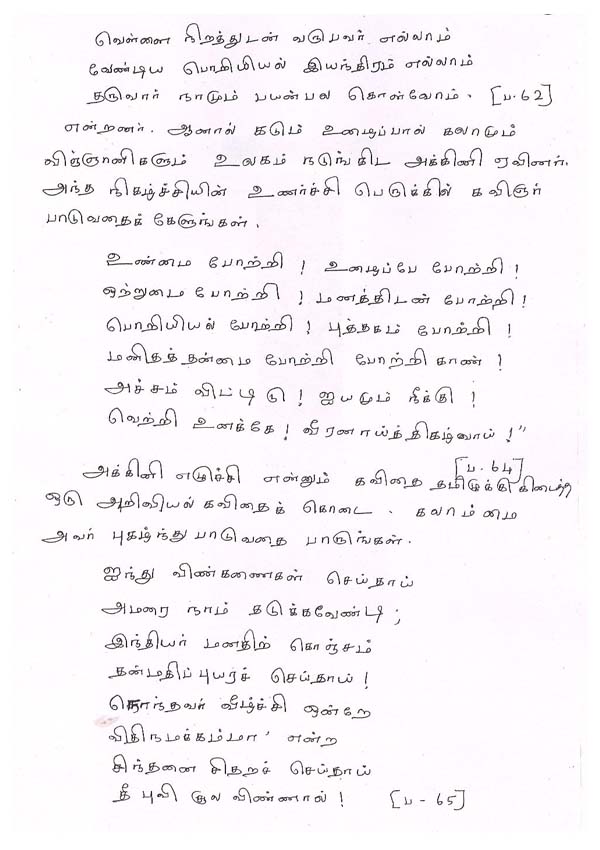 வெள்ளை நிறத்துடன் வருபவர் எல்லாம்
வேண்டிய பொறியியல் இயந்திரம் எல்லாம்
தருவார் நாமும் பயன்பல கொள்வோம். [ப.62]
என்றனர். ஆனால் கடும் உழைப்பால் கலாமும்
விஞ்ஞானிகளும் உலகம் நடுங்கிட அக்கினி ஏவினர்.
அந்த நிகழ்ச்சியின் உணர்ச்சி பெருக்கில் கவிஞர்
பாடுவதைக் கேளுங்கள்.
உண்மை போற்றி! உழைப்பே போற்றி!
ஒற்றுமை போற்றி! மனத்திடன் போற்றி!
பொறியியல் போற்றி! புத்தகம் போற்றி!
மனிதத்தன்மை போற்றி போற்றி காண்!
அச்சம் விட்டிடு! ஐயமும் நீக்கு!
வெற்றி உனக்கே! வீரனாய்த்திகழ்வாய்!"
[ப. 64]
அக்கினி எழுச்சி என்னும் கவிதை தமிழுக்குகிடைத்த
ஒரு அறிவியல் கவிதைக் கொடை. கலாம்மை
அவர் புகழ்ந்து பாடுவதை பாருங்கள்.
ஐந்து விண்கணைகள் செய்தாய்
அமரை நாம் தடுக்கவேண்டி;
இந்தியர் மனதிற் கொஞ்சம்
தன்மதிப்புயரச் செய்தாய்!
வீழ்ச்சி ஒன்றே
விதிநமக்கம்மா' என்ற
சிந்தனை சிதறச் செய்தாய்
தீ புவி சூல விண்ணால்! [ப - 65]